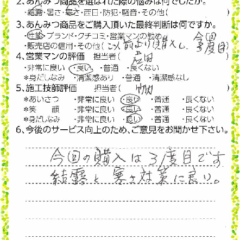 2.あんみつ商品を選ばれた際の悩みは何でしたか。
・結露・暑さ・寒さ・防日・防犯・防音・その他(
3.あんみつ商品をご購入頂いた最終判断は何ですか。
・性能・ブランド・クチコミ・営業マンの勧め
販売店の信用・その他( より購入し、今回 3度目
4.営業マンの評価 担当者(
・非常に良い・良い・普通・良くない
*身だしなみ ・清潔感あり ・普通 ・清潔感なし
5.施工技師評価 担当者(
*あいさつ ・非常に良い・良い・普通・良くない
*笑顔 ・非常に良い・良い・普通・良くない
*身だしなみ ・非常に良い・良い・普通・良くない
6.今後のサービス向上のため、ご意見をお聞かせ下さい。
今回の購入は3度目です
結露と寒さ対策に良い。